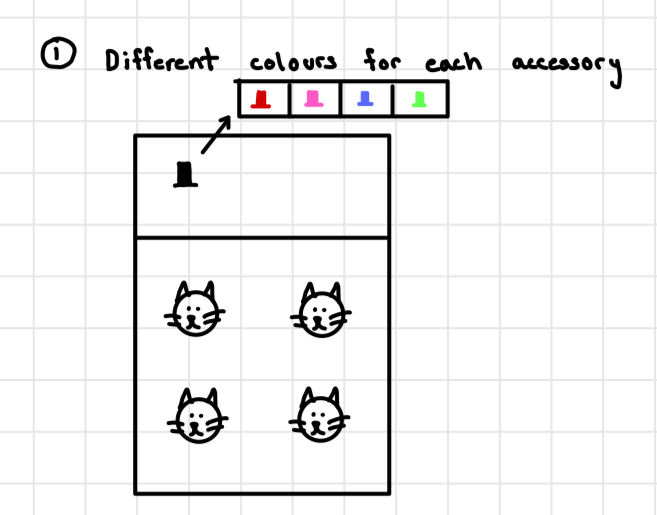 ① Different colours for each accessory